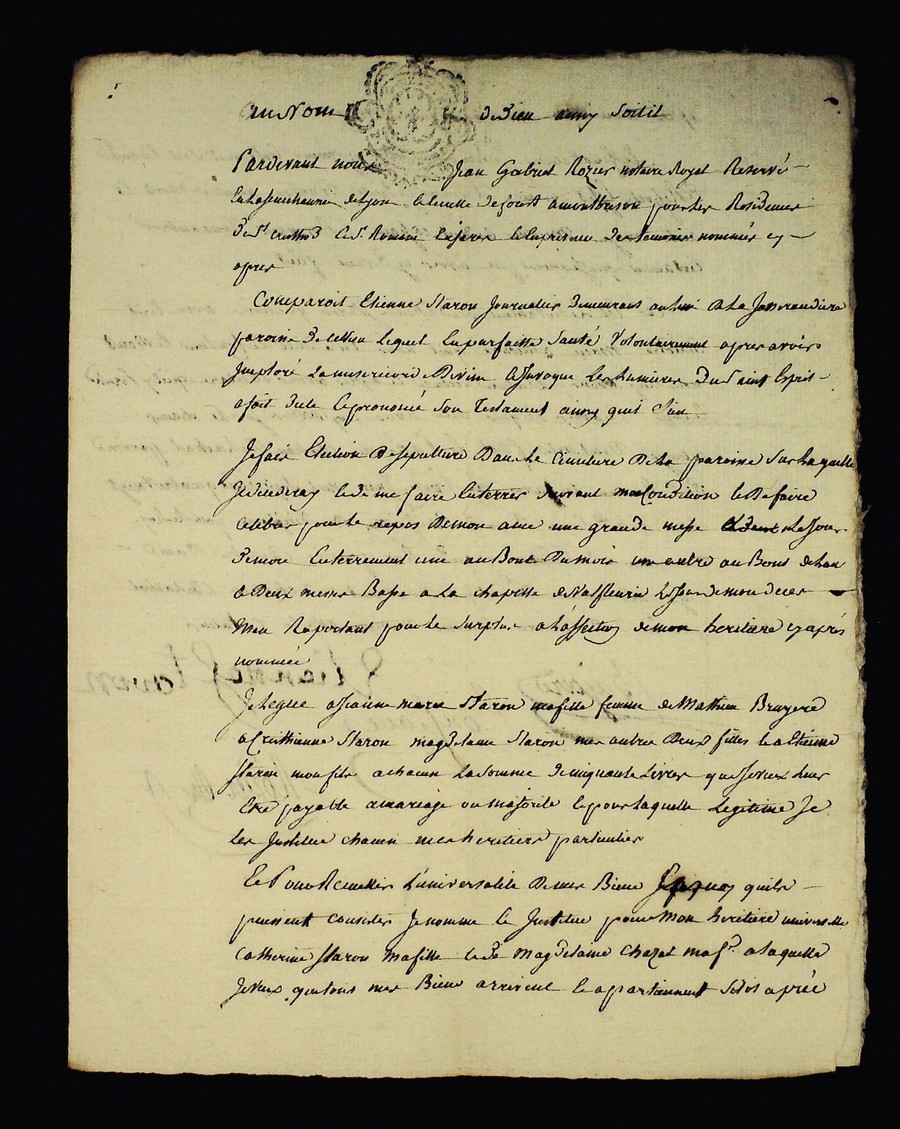 au Nom de Dieu ainsy soitil
Pardevant nous Jean Gabriel Rozier notaire Royal Reservé
en la senechaussée de Lyon à montbrison pour les Residences
de St cristhod et St Romain Et en presence des temoins nommés cy
apres
Comparoit Etienne Staron Journallier demeurant au lieu de la
paroisse de lequel En parfaitte Santé Volontairement apres avoir
Imploré La misericorde Divine Et Invoqué Les Lumieres Du Saint Esprit
a fait dicté Et prononcé Son Testament ainsy quil Suit
Je fais Election De sepulture Dans Le Cimetiere De La paroisse Sur laquelle
Je decederay Et de me faire Enterrer Suivant ma Condition Et De faire
Celebrer pour Le repos De mon ame une grande messe Le Jour
De mon Enterrement une au Bout Du mois un autre au Bout de Lan
a Deux messes Basse a La chapelle de Valfleurie Le Jour de mon deces
Men Raportant pour Le Surplus a Laffection de mon heritiere cy après
nommée
Je Legue a Jeanne marie Staron ma fille femme de Mathieu Bruyere
a Cristhianne Staron magdelaine Staron mes autres Deux filles Et a Etienne
Staron mon fils a chacun La Somme De cinquante Livres que Je veux Leur
Etre payable a mariage ou majorité Et pour laquelle Legitime Je
les Institue chacun mes heritiers particuliers
Et Pour Recueillir L'universalité De mes Biens quils
puissent consister Je nomme Et Institue pour Mon heritiere universelle
Catherine Staron Ma fille et de Magdelaine Chazet ma fe. a laquelle
Je veux que tous mes Biens arrivent Et apartiennent Sitot après